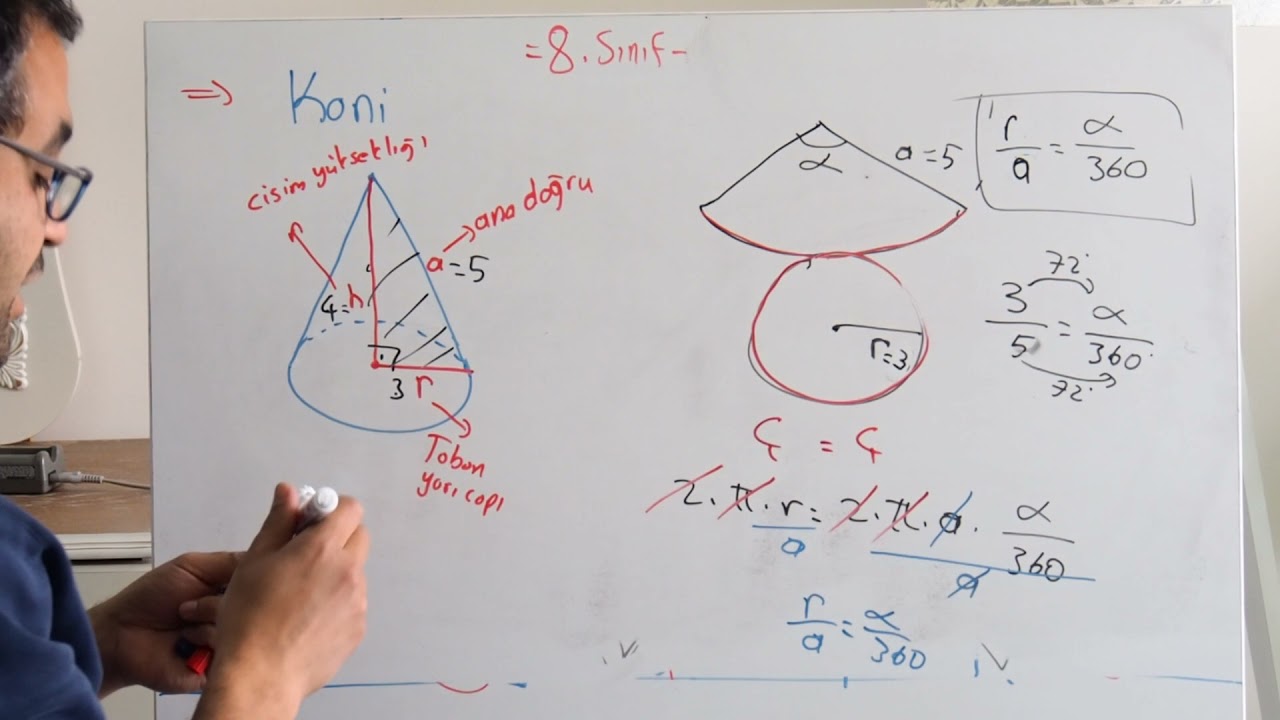 =8. Sınıf-
⇒ Koni
cisim yüksekliği
ana doğru
a=5
4=h
3 r
Taban
yarıçapı
α
a=5
r/a = α/360
r=3
72°
3/5 = α/360°
72°
Ç = Ç
2.π.r/a = 2.π.a.α/360/a
r/a = α/360